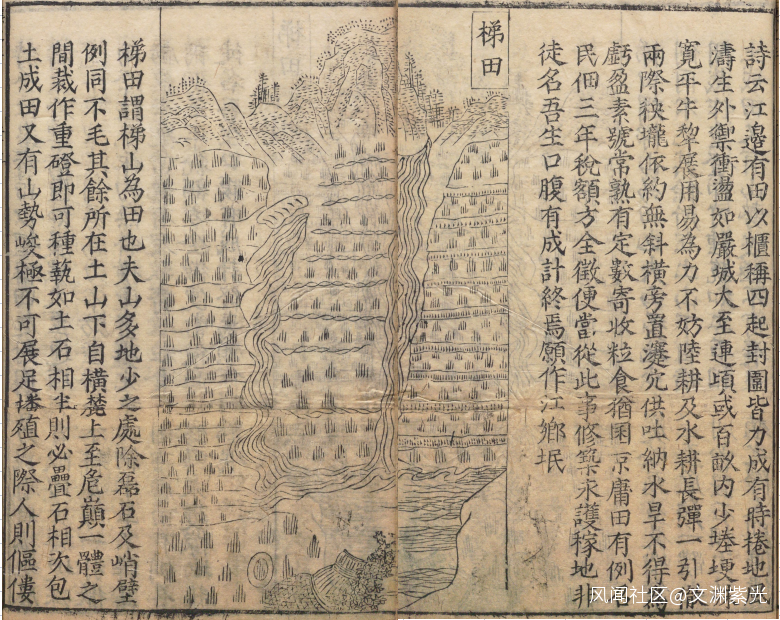 詩云江邊有田以櫃稱四起封圍皆力成有時捲地風
濤生外禦衝盪如嚴城大至連頃或百畝內少塍埂殊
寬平牛犂展用易為力不妨陸耕及水耕長彈一引彌
兩際秧壠依約無斜橫旁置瀽穴供吐納水旱不得為
虧盈素號常熟有定數寄收粒食猶囷京庸田有例召
民佃三年稅額方全徵便當從此事修築永護稼地非
徒名吾生口腹有成計終焉願作江鄉氓
梯田
梯田謂梯山為田也夫山多地少之處除磊石及峭壁
例同不毛其餘所在土山下自橫麓上至危巔一體之
間裁作重磴即可種蓺如土石相半則必疊石相次包
土成田又有山勢峻極不可展足播殖之際人則傴僂
风闻社区@文渊紫光